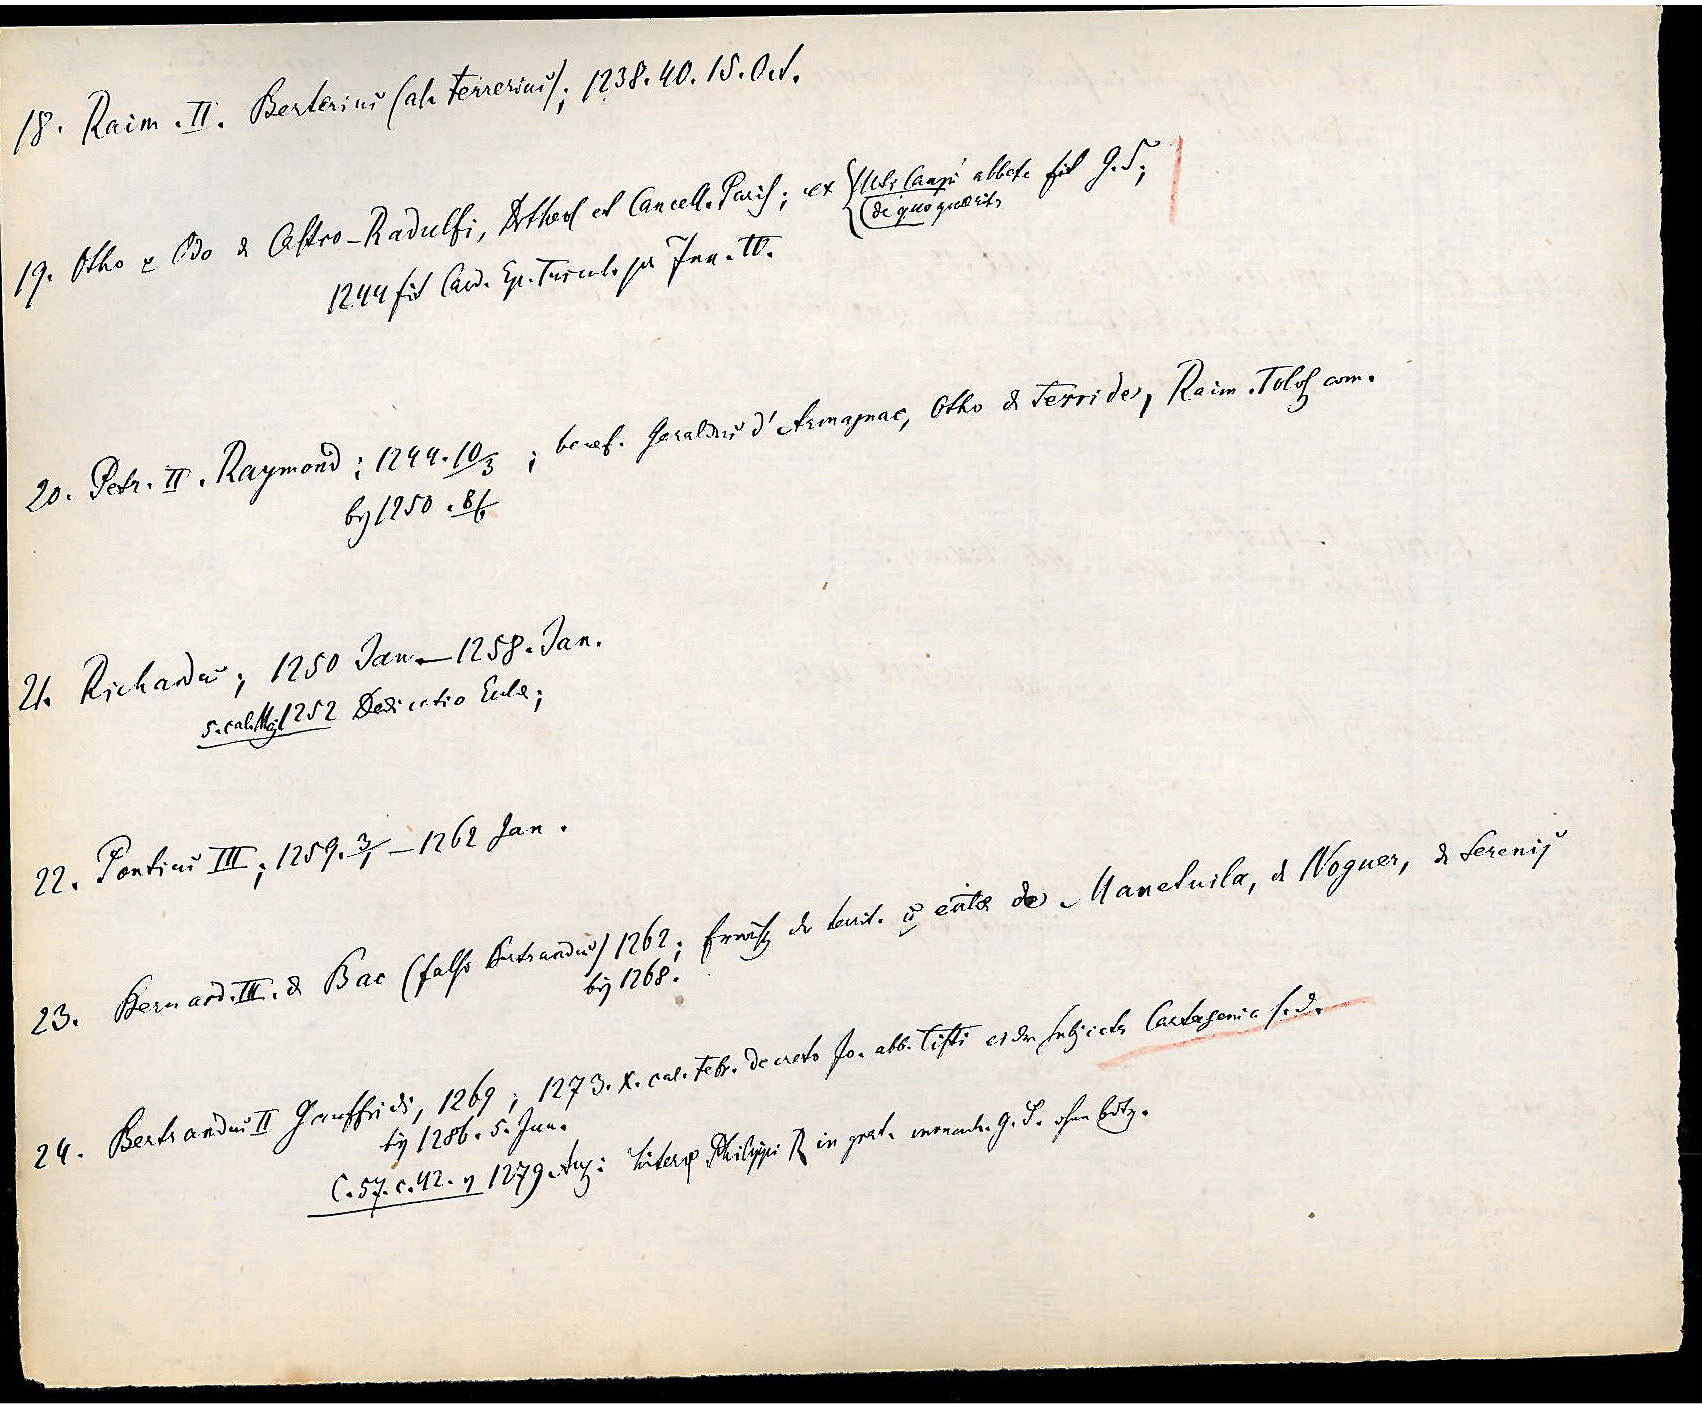 18. Raim. II. Berterius (al. Ferrerius); 1238. 40. 15. Oct.
19. Otho v Odo de Castro-Radulfi, et Cancell. Paris; ex abbate fit G. S;
(de quo quaeritr
1244 fit Card. Ep. Tuscul. per Inn. IV.
20. Petr. II. Raymond; 1244. 10/3; benef. Geraldus d'Armagnac, Otho de Terrides, Raim. Tolos com.
bis 1250. 8/1
21. Richardus; 1250 Jan. — 1258. Jan.
5. cal. Maji 1252 Dedicatio Eccle;
22. Pontius III; 1259. 3/1 — 1262 Jan.
23. Bernard. III. de Bac (falso Bertrandus) 1262; de territ. de Manetvila, de Noguer, de Serenis
bis 1268.
24. Bertrandus II Gauffridi, 1269; 1273. X. cal. Febr. decreto Jo. abb. Cisti eidem subjicitr Cartagenia s. d.
bis 1286. 5. Jun.
C. 57. c. 42. v 1279. Aug: Philippi R in grat. monach. G. S. ohne